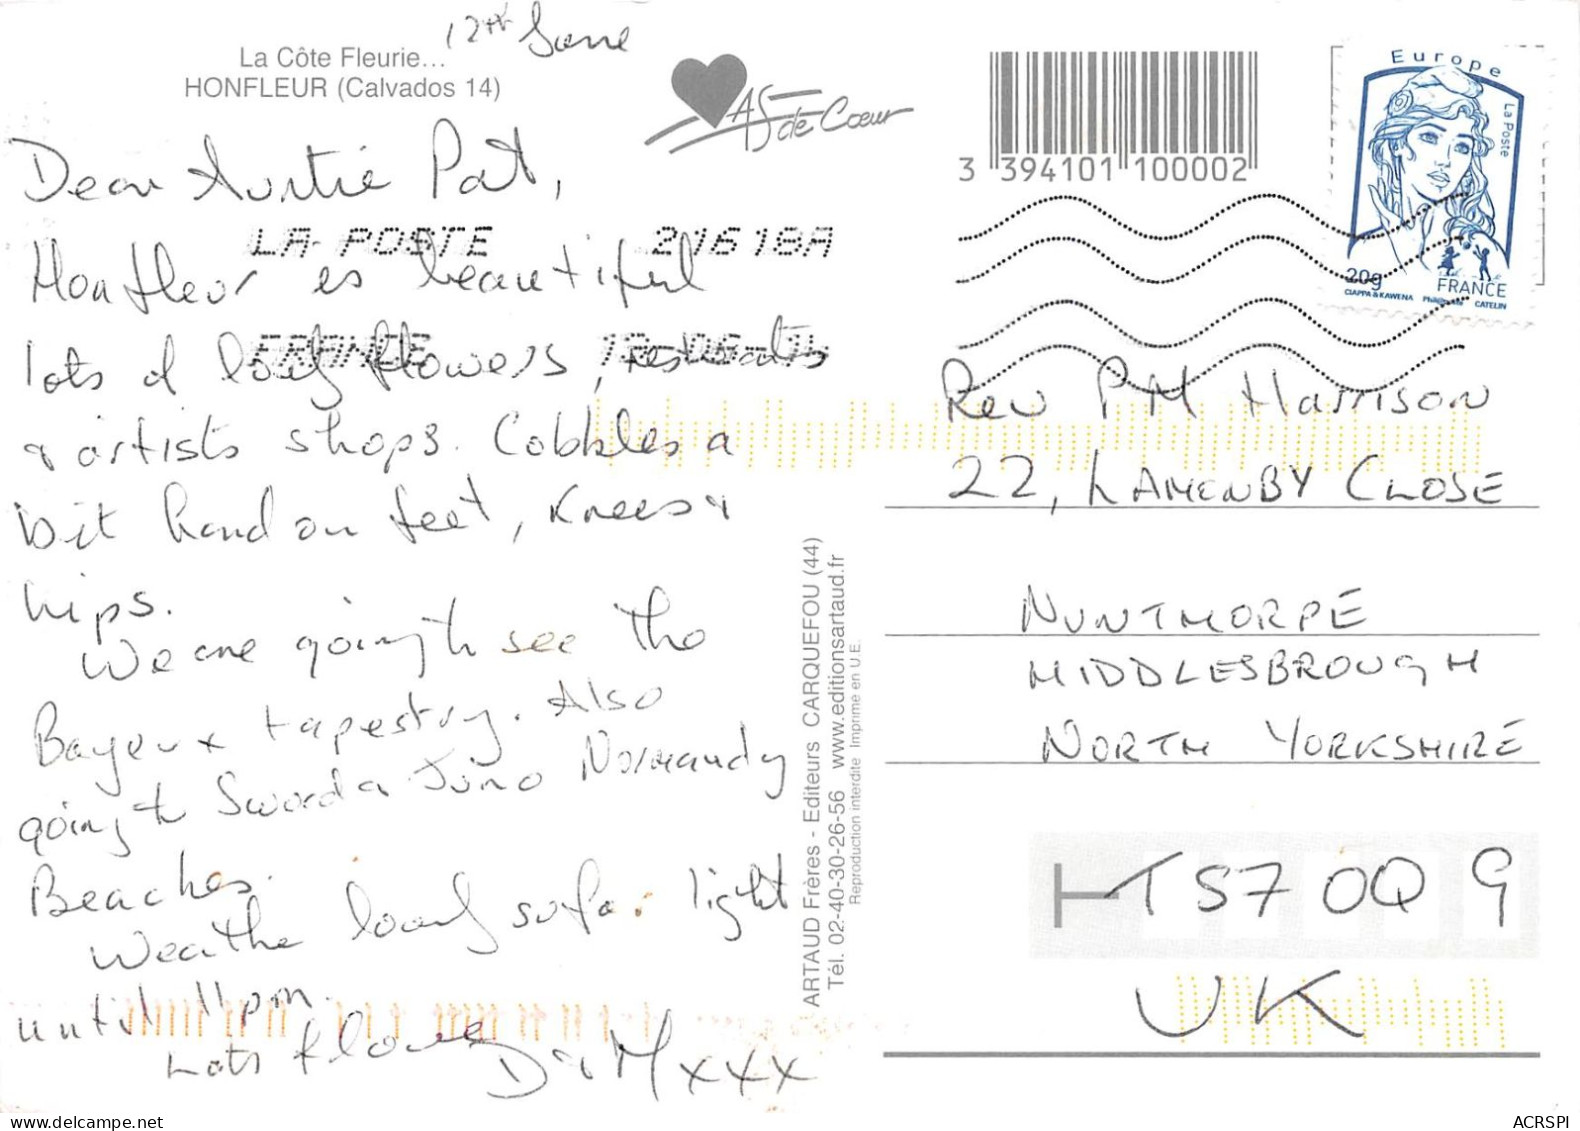 12th June
La Côte Fleurie...
HONFLEUR (Calvados 14)
AS de Cœur
3 394101 100002
Europe
La Poste
20g
FRANCE
CIAPPA & KAWENA Phil@poste CATELIN
LA POSTE 21618A
FRANCE
Dear Auntie Pat,
Honfleur is beautiful
lots of lovely flowers, restraunts
& artists shops. Cobbles a
bit hard on feet, knees &
hips.
We are going to see the
Bayeux tapestry. Also
going to Sword & Juno Normandy
Beaches.
Weather lovely so far. light
until 11pm.
Lots of love
D & M xxx
ARTAUD Frères - Editeurs CARQUEFOU (44)
Tél. 02-40-30-26-56 www.editionsartaud.fr
Reproduction interdite Imprimé en U.E.
Rev P M Harrison
22, LAMONBY CLOSE
NUNTHORPE
MIDDLESBROUGH
NORTH YORKSHIRE
TS7 0QG
UK
ACRSPI